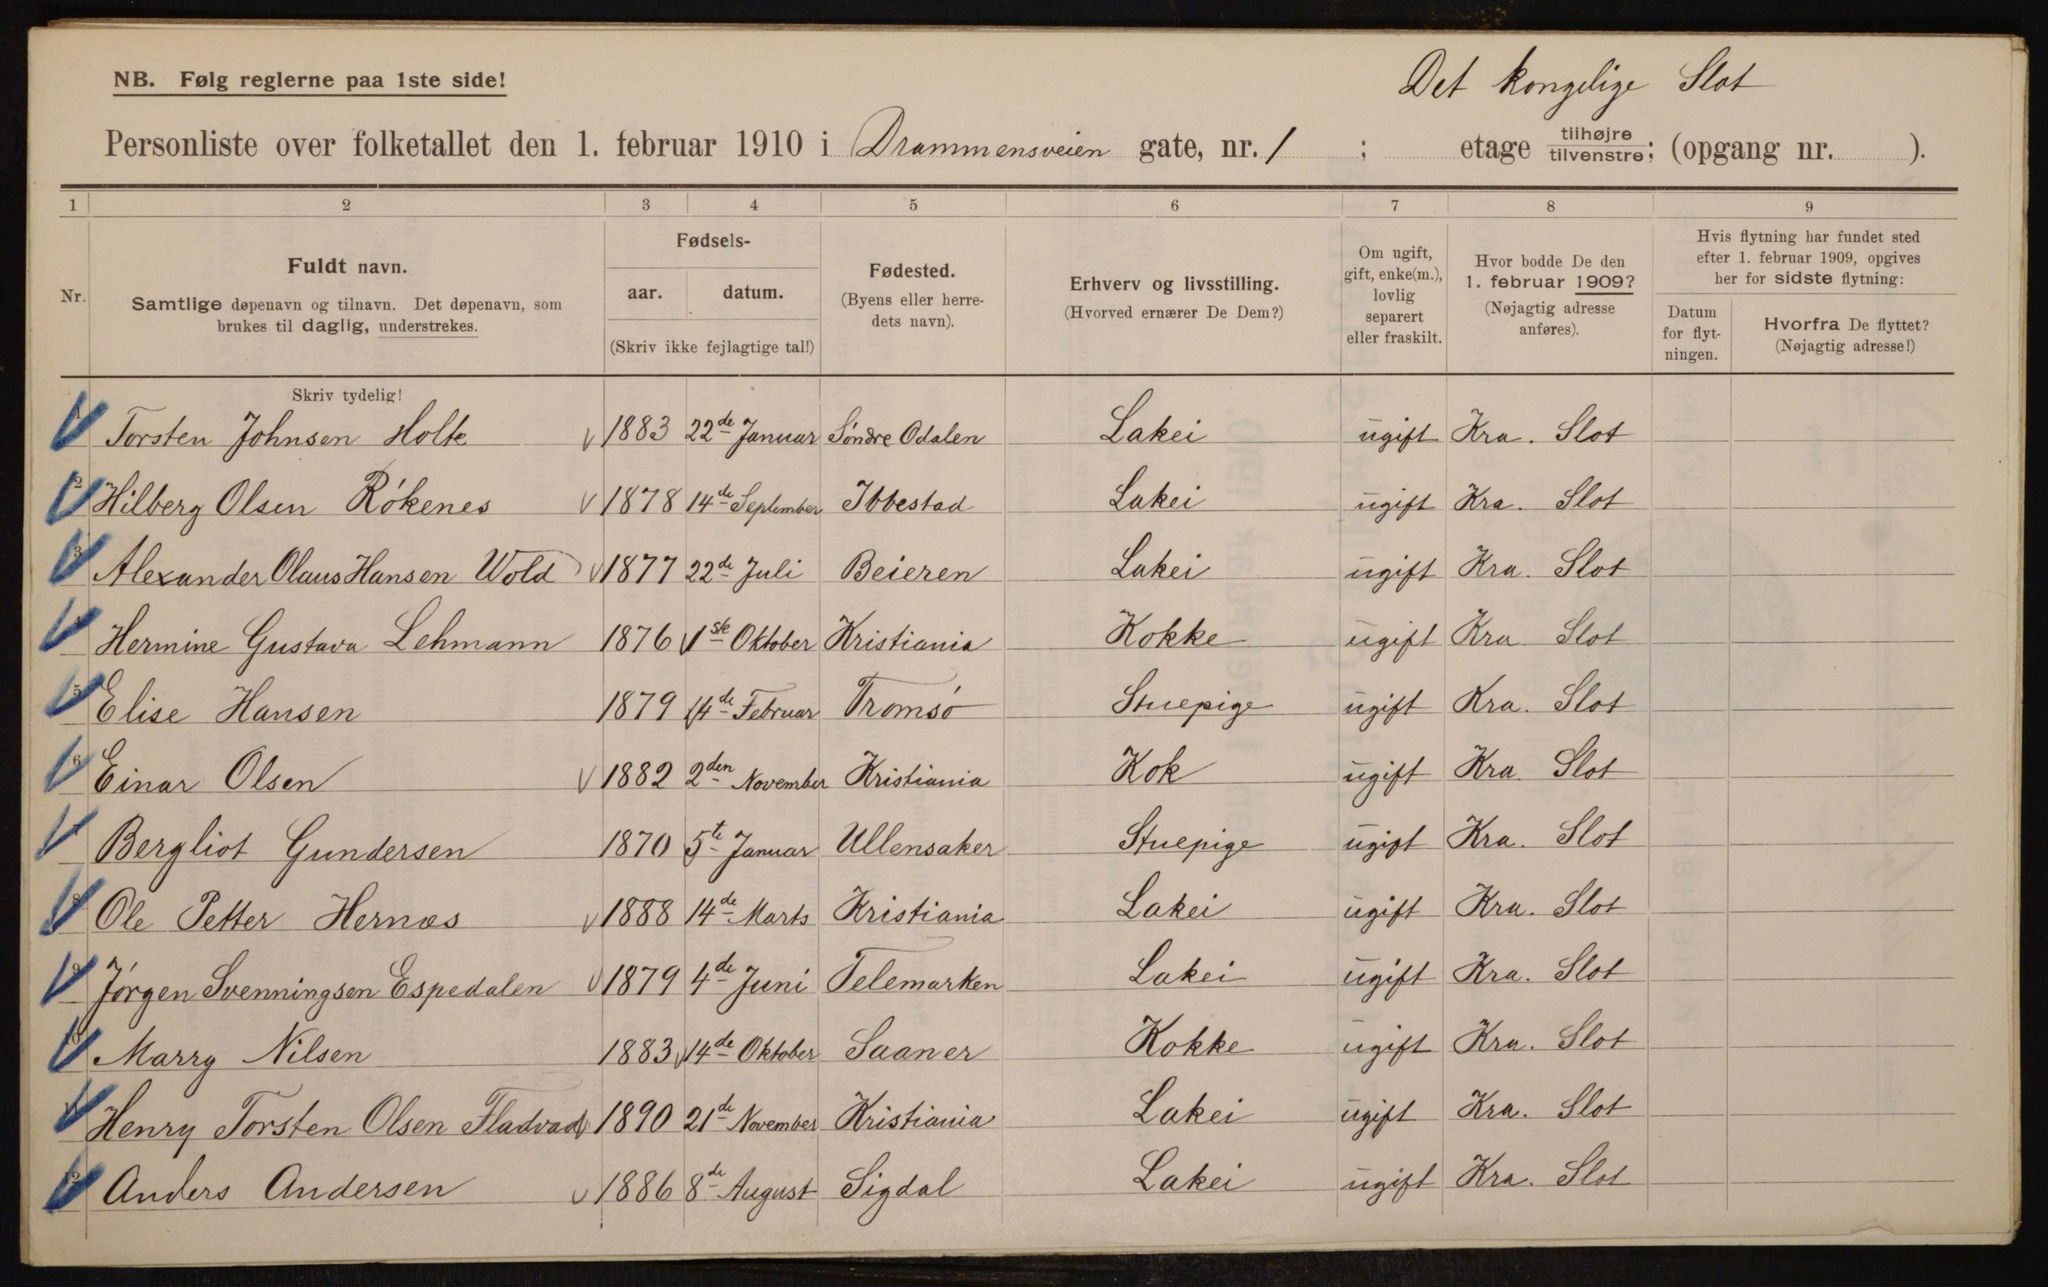 NB. Følg reglerne paa 1ste side!
Det kongelige Slot
Personliste over folketallet den 1. februar 1910 i Drammensveien gate, nr. 1 ; etage tilhøjre tilvenstre; (opgang nr. ).
1 2 3 4 5 6 7 8 9
Nr.
Fuldt navn.
Samtlige døpenavn og tilnavn. Det døpenavn, som
brukes til daglig, understrekes.
Fødsels-
aar. datum.
(Skriv ikke fejlagtige tal!)
Fødested.
(Byens eller herre-
dets navn).
Erhverv og livsstilling.
(Hvorved ernærer De Dem?)
Om ugift,
gift, enke(m.),
lovlig
separert
eller fraskilt.
Hvor bodde De den
1. februar 1909?
(Nøjagtig adresse
anføres).
Hvis flytning har fundet sted
efter 1. februar 1909, opgives
her for sidste flytning:
Datum
for flyt-
ningen.
Hvorfra De flyttet?
(Nøjagtig adresse!)
Skriv tydelig!
1 Torsten Johnsen Holte 1883 22de Januar Søndre Odalen Lakei ugift Kra. Slot
2 Hilberg Olsen Rökenes 1878 14de September Ibbestad Lakei ugift Kra. Slot
3 Alexander Olaus Hansen Wold 1877 22de Juli Beieren Lakei ugift Kra. Slot
4 Hermine Gustava Lehmann 1876 1ste Oktober Kristiania Kokke ugift Kra Slot
5 Elise Hansen 1879 14de Februar Tromsö Stuepige ugift Kra. Slot
6 Einar Olsen 1882 2den November Kristiania Kok ugift Kra. Slot
7 Bergliot Gundersen 1870 5te Januar Ullensaker Stuepige ugift Kra. Slot
8 Ole Petter Hernæs 1888 14de Marts Kristiania Lakei ugift Kra. Slot
9 Jörgen Svenningsen Espedalen 1879 4de Juni Telemarken Lakei ugift Kra. Slot
10 Marry Nilsen 1883 14de Oktober Saaner Kokke ugift Kra. Slot
11 Henry Torsten Olsen Fladvad 1890 21de November Kristiania Lakei ugift Kra. Slot
12 Anders Andersen 1886 8de August Sigdal Lakei ugift Kra. Slot